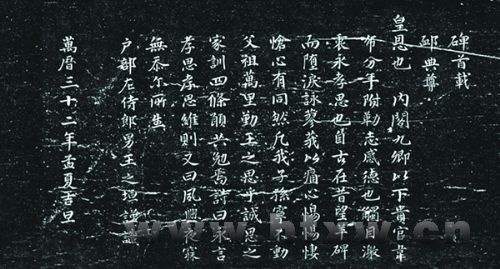 碑首載
卹典尊
皇恩也 內閣九卿以下貴官韋
布分手附勒志感德也觸目激
衷永孝思也自古在昔望羊碑
而墮淚詠蓼莪以痛心惕惕悽
愴心有同然凡我子孫寧不動
父祖萬里勤王之思乎誠思之
家訓四條願共勉焉詩曰永言
孝思孝思維則又曰夙興夜寐
無忝尔所生
户部左侍郎男王之垣謹
萬曆三十二年孟夏吉旦